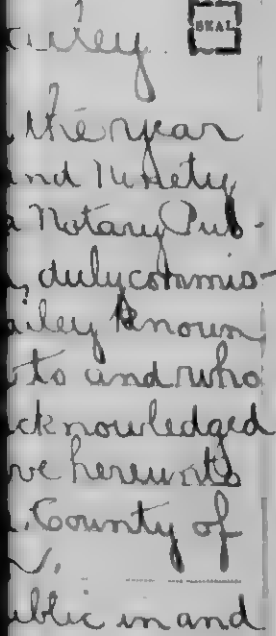 ailey. SEAL
the year
and Ninety
a Notary Pub-
duly commis-
ailey known
to and who
acknowledged
ve hereunto
County of
ublic in and